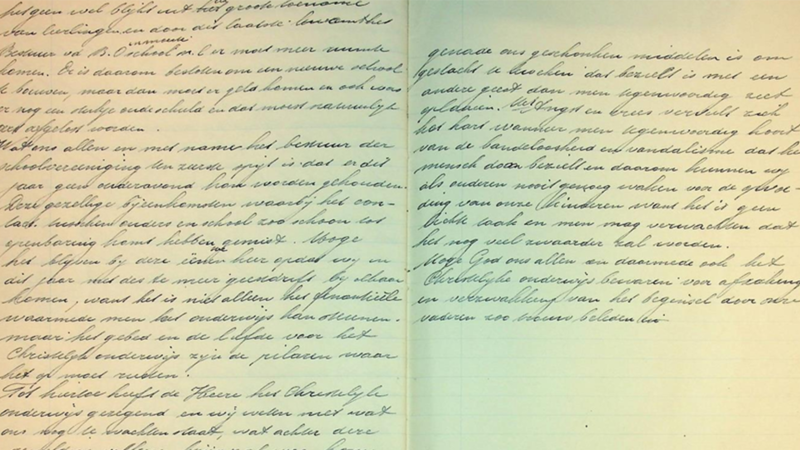 hetgeen wel blijkt uit de groote toename
van leerlingen en door dit laatste kwam het
Bestuur v/d B.O school n.l er moet meer ruimte
komen. Er is daarom besloten om een nieuwe school
te bouwen, maar dan moet er geld komen en ook was
er nog een stukje oude schuld en dat moest natuurlijk
eerst afgelost worden.
Wat ons allen en met name het bestuur der
schoolvereeniging ten zeerste spijt is dat er dit
jaar geen ouderavond kon worden gehouden.
Deze gezellige bijeenkomsten waarbij het con-
tact tusschen ouders en school zoo schoon tot
openbaring komt hebben gemist. Moge
het blijven bij deze eene keer opdat wij in
dit jaar met des te meer geestdrift bij elkaar
komen, want het is niet alleen het finantieele
waarmede men het onderwijs kan steunen.
maar: het gebed en de liefde voor het
Christelijk onderwijs zijn de pilaren waar
het op moet rusten.
Tot hiertoe heeft de Heere het Christelijk
onderwijs gezegend en wij weten niet wat
ons nog te wachten staat, wat achter deze
genade ons geschonken middelen is om
geslacht te kweeken dat bezield is met een
andere geest dan men tegenwoordig ziet
opduiken. Met Angst en vrees vervult zich
het hart wanneer men tegenwoordig hoort
van de bandeloosheid en vandalisme dat het
mensch doen bezielt en daarom kunnen wij
als ouderen nooit genoeg waken voor de opvoe-
ding van onze kinderen want het is geen
lichte taak en men mag verwachten dat
het nog veel zwaarder zal worden.
Moge God ons allen en daarmede ook het
Christelijke onderwijs bewaren voor afzakking
en verzwakking van het beginsel door onze
vaderen zoo trouw beleden